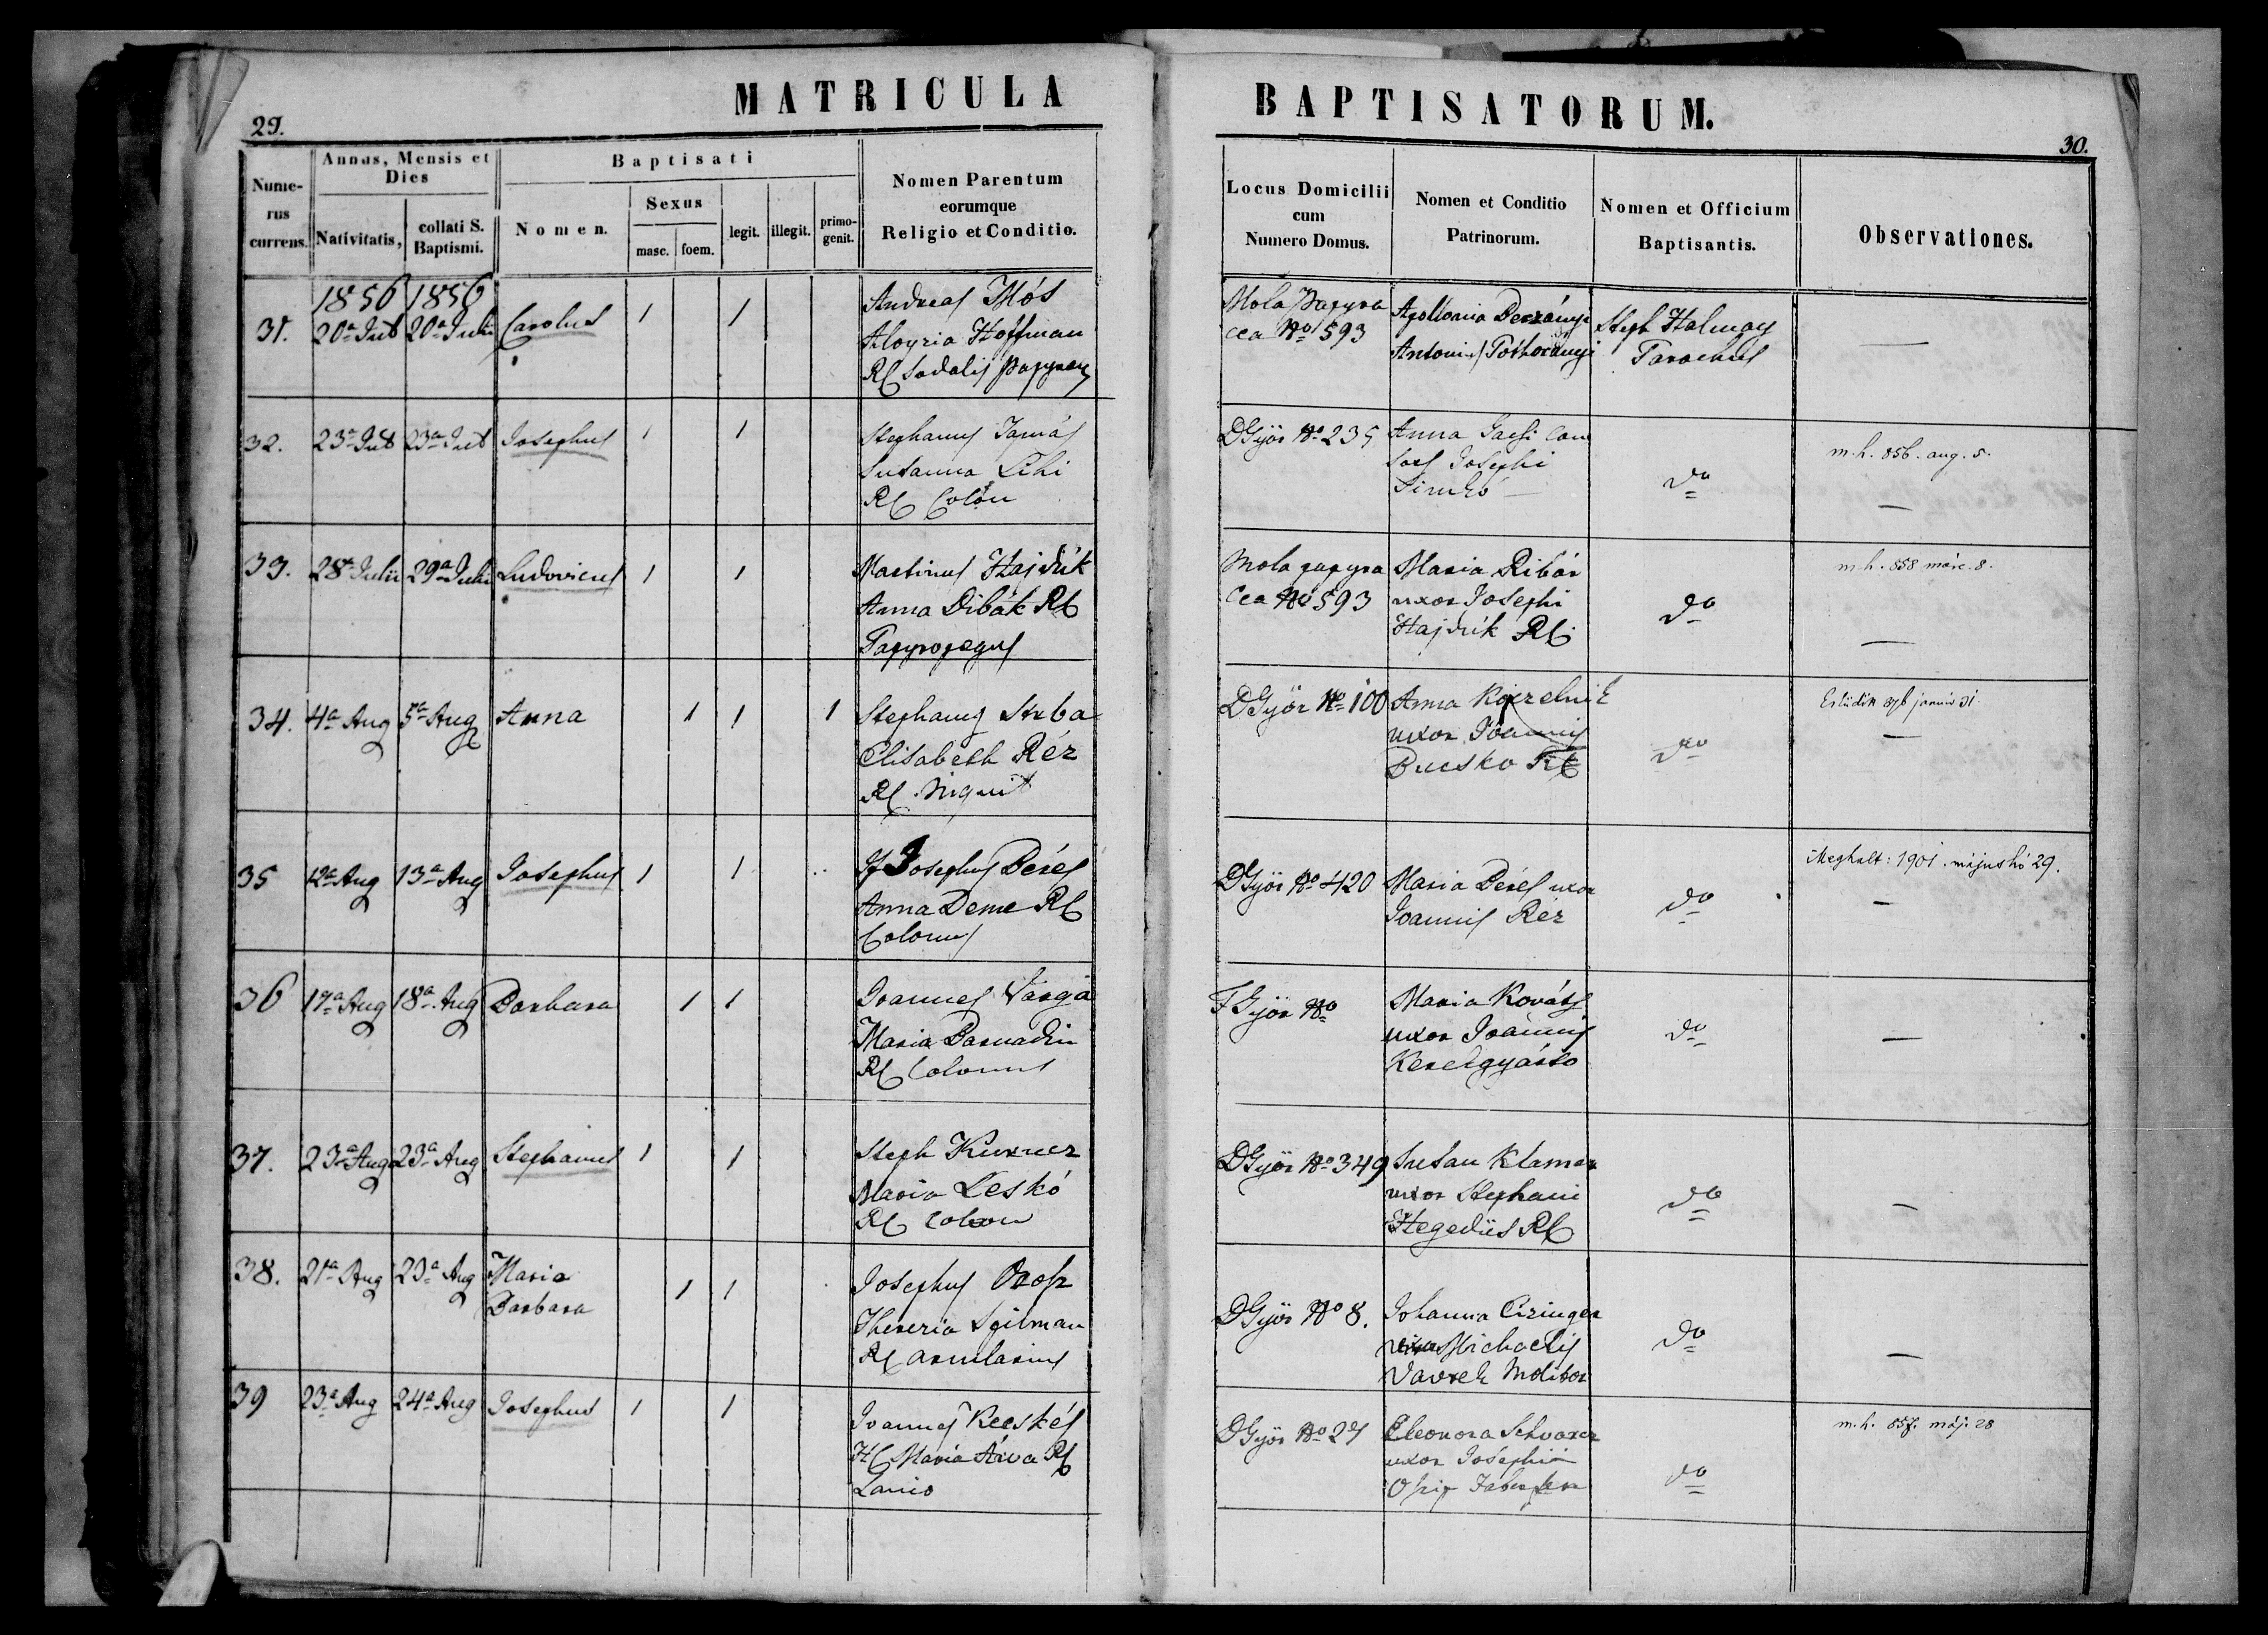 MATRICULA BAPTISATORUM.
29.
30.
Numerus currens.
Annus, Mensis et Dies
Nativitatis,
collati S. Baptismi.
Baptisati
Nomen.
Sexus
masc.
foem.
legit.
illegit.
primogenit.
Nomen Parentum
eorumque
Religio et Conditio.
Locus Domicilii
cum
Numero Domus.
Nomen et Conditio
Patrinorum.
Nomen et Officium
Baptisantis.
Observationes.
1856 1856
31. 20a Jul 20a Julii Carolus 1 1
Andreas Mós
Aloyzia Hoffman
RC Sodalis
Mola Papyra
cea No 593
Apollonia
Antonii
Steph Halmay
Parochus
32. 23a Jul 23a Jul Josephus 1 1
Stephanus Tamás
Susanna Lehi
RC Colon
DGyör No 235
Anna
Josephi
do
m.h. 856. aug. 5.
33. 28a Julii 29a Julii Ludovicus 1 1
Martinus Hajdúk
Anna Dibák RC
Papyropegus
Mola papyra
cea No 593
Maria Ribár
uxor Josephi
Hajdúk RC
do
m.h. 858 márc. 8.
34. 4a Aug 5a Aug Anna 1 1 1
Stephanus Strba
Elisabeth Réz
RC Inquil
DGyör No 100
Anna
uxor Joannis
Bucsko RC
do
Esküdött január 31.
35 12a Aug 13a Aug Josephus 1 1
Josephus Béres
Anna Deme RC
Colonus
DGyör No 420
Maria Béres uxor
Joannis Réz
do
Meghalt: 1901. május hó 29.
36 17a Aug 18a Aug Barbara 1 1
Joannes Varga
Maria Barnadin
RC Colonus
FGyör No
Maria Kováts
uxor Joannis
Kerékgyárto
do
37. 23a Aug 23a Aug Stephanus 1 1
Steph
Maria Leskó
RC Colon
DGyör No 349
Susan Klamar
uxor Stephani
Hegedüs RC
do
38. 21a Aug 23a Aug Maria
Barbara 1 1
Josephus Orosz
Theresia Spilman
RC arcularius
DGyör No 8.
Johanna Cizinger
uxor Michaelis
Vavrek Molitor
do
39 23a Aug 24a Aug Josephus 1 1
Joannes Kecskés
HC Maria Árva RC
Lanio
DGyör No 27
Eleonora Schvarcz
uxor Josephi
do
m.h. 857. máj. 28